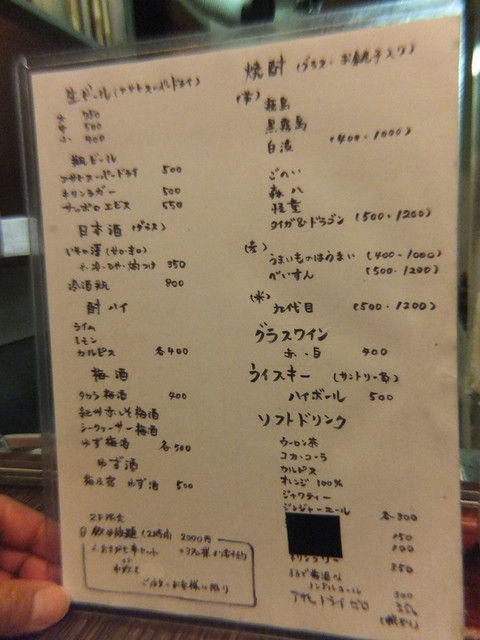 生ビール(アサヒスーパードライ)
大 750
中 500
小 400
瓶ビール
アサヒスーパードライ 500
キリンラガー 500
サッポロエビス 550
日本酒 (グラス)
350
冷酒 瓶 800
酎ハイ
ライム
レモン
カルピス 各400
梅酒
タカラ梅酒 400
紀州赤しそ梅酒
シークァーサー梅酒
ゆず梅酒 各500
ゆず酒
ゆず酒 500
2F限定
飲み放題 (2時間) 2000円
焼酎 (グラス・お銚子入り)
(芋)
霧島
黒霧島
白波 (400・1000)
森八
悟空
タイガ&ドラゴン (500・1200)
(麦)
うまいものはうまい (400・1000)
べいすん (500・1200)
(米)
九代目 (500・1200)
グラスワイン
赤・白 400
ウイスキー (サントリー角)
ハイボール 500
ソフトドリンク
ウーロン茶
コカ・コーラ
カルピス
オレンジ100%
ジャワティー
ジンジャーエール 各300
150
350
ノンアルコール 300
アサヒ ドライゼロ 350